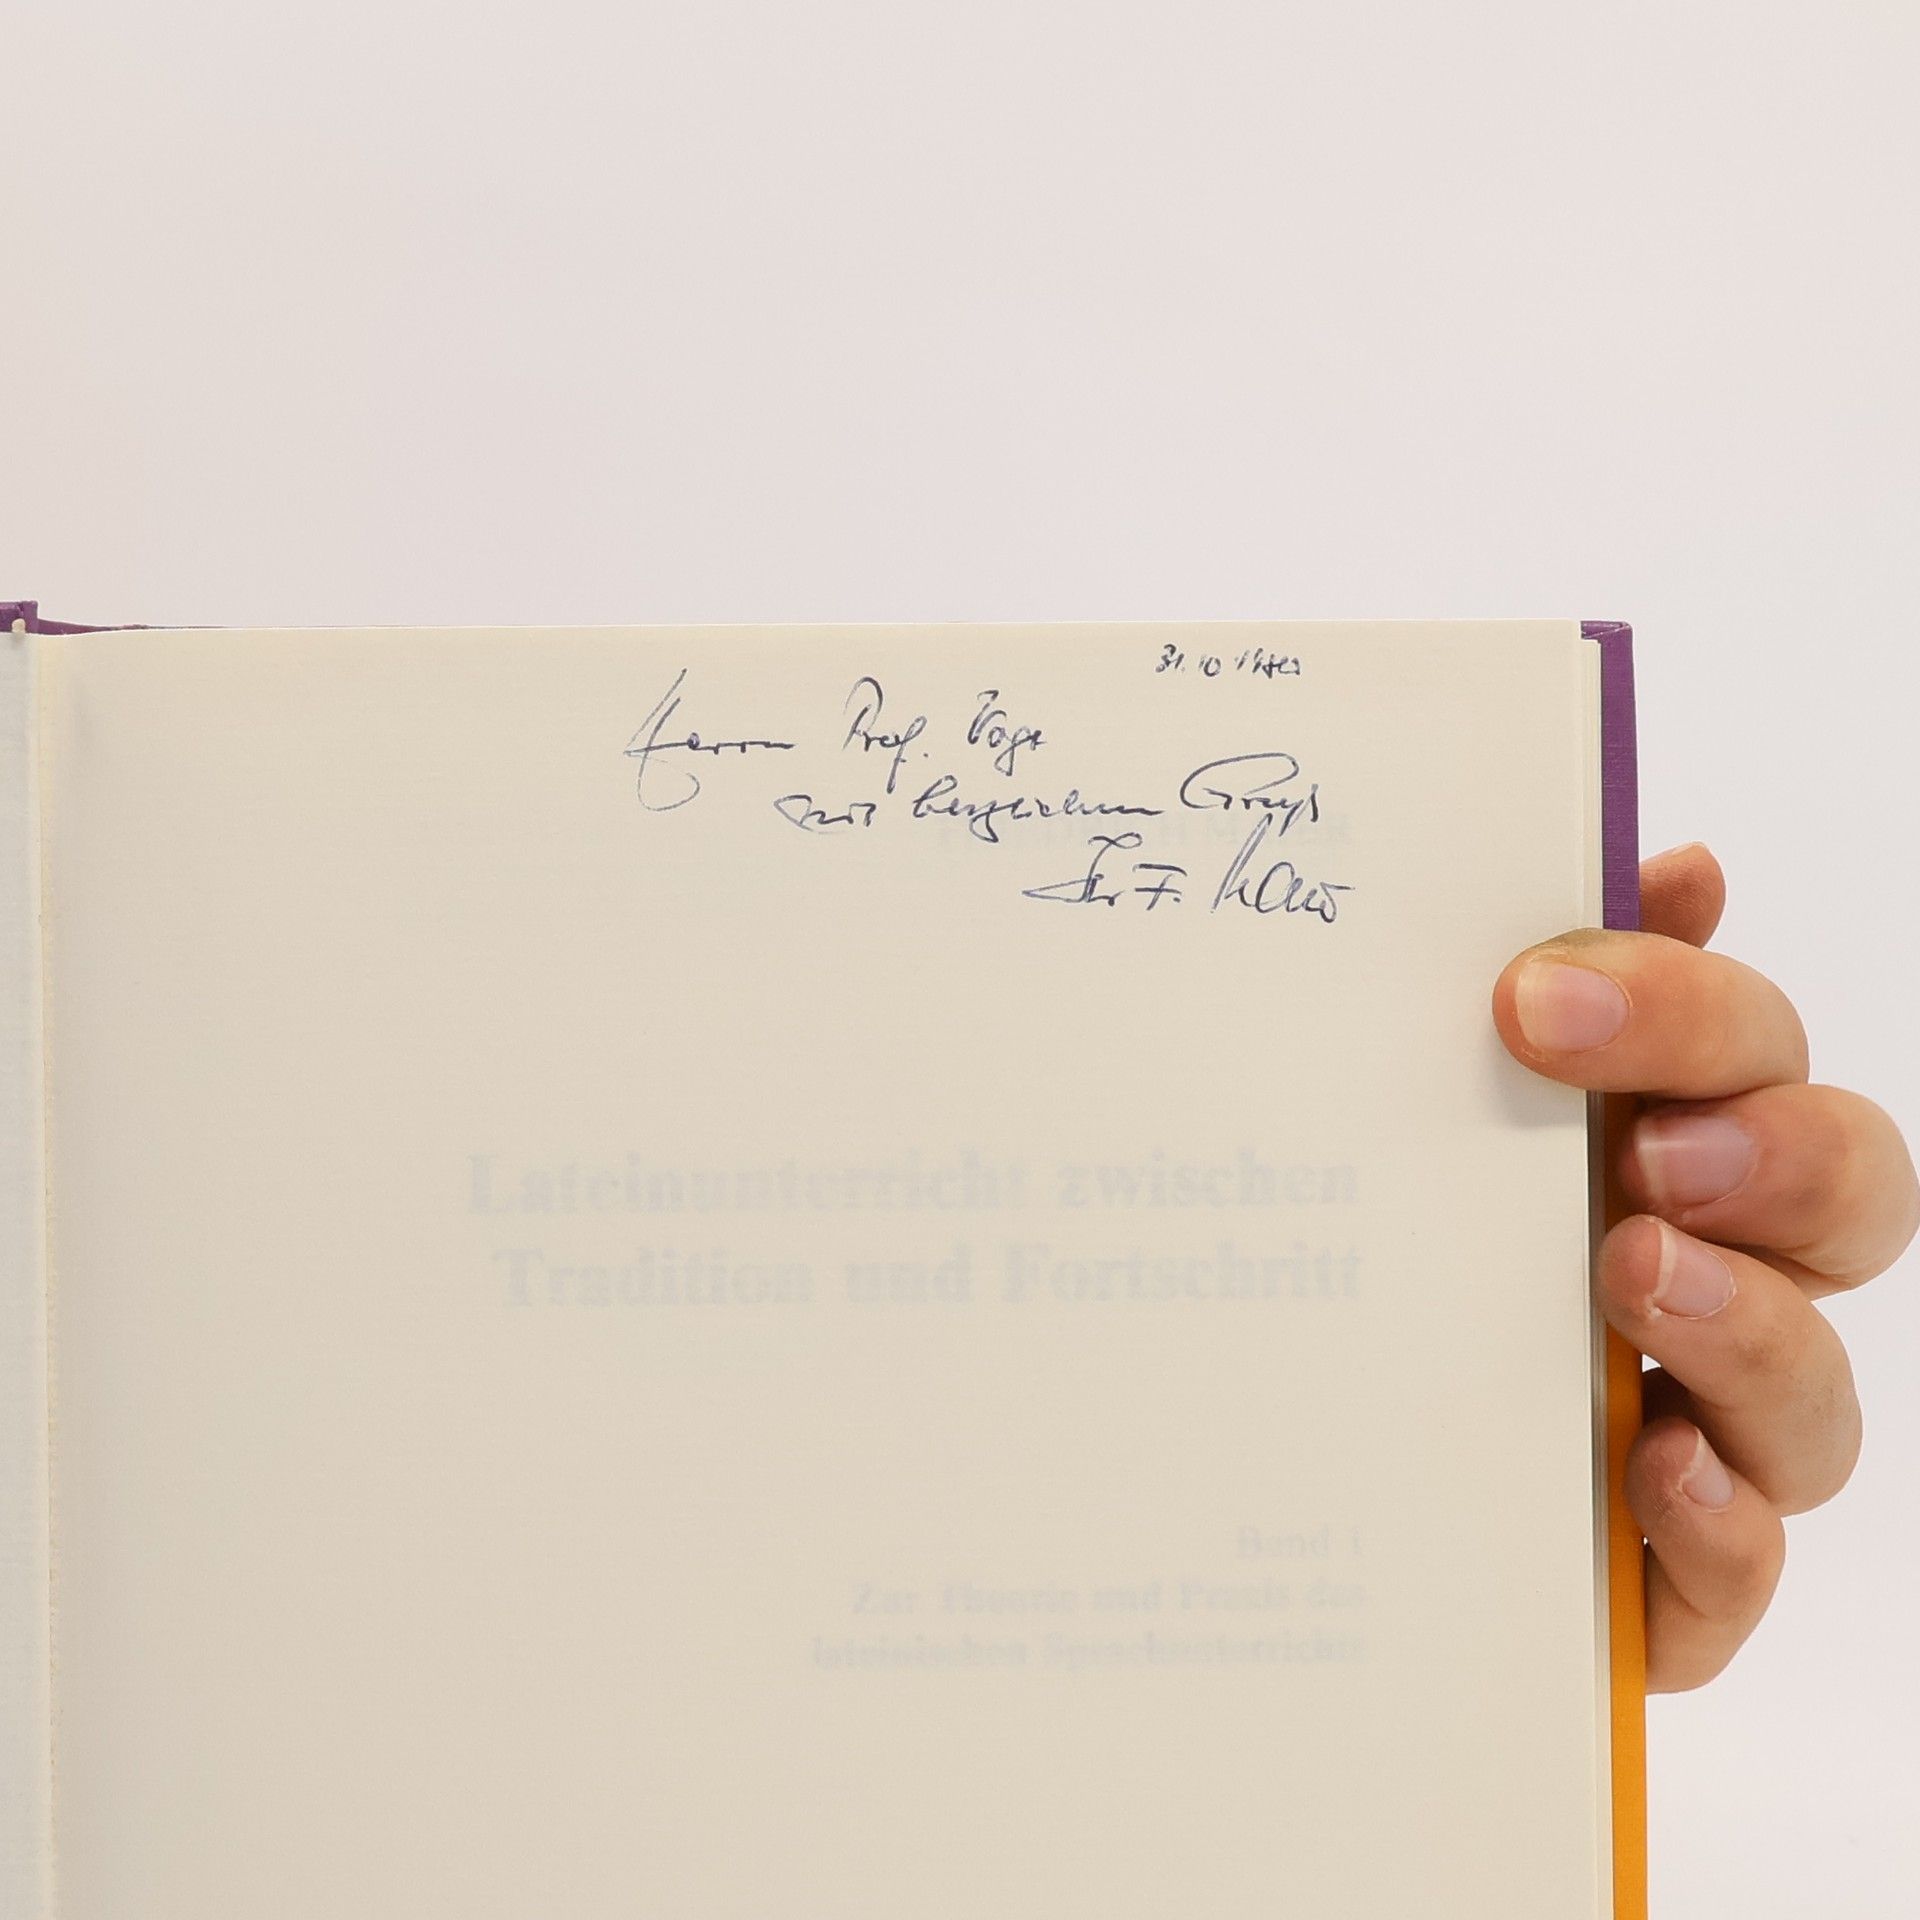 31. 10
Herrn Prof. Vogt
mit herzlichem Gruß
Ihr F. Maier
Lateinunterricht zwischen
Tradition und Fortschritt
Band 1
Zur Theorie und Praxis des
lateinischen Sprachunterrichts